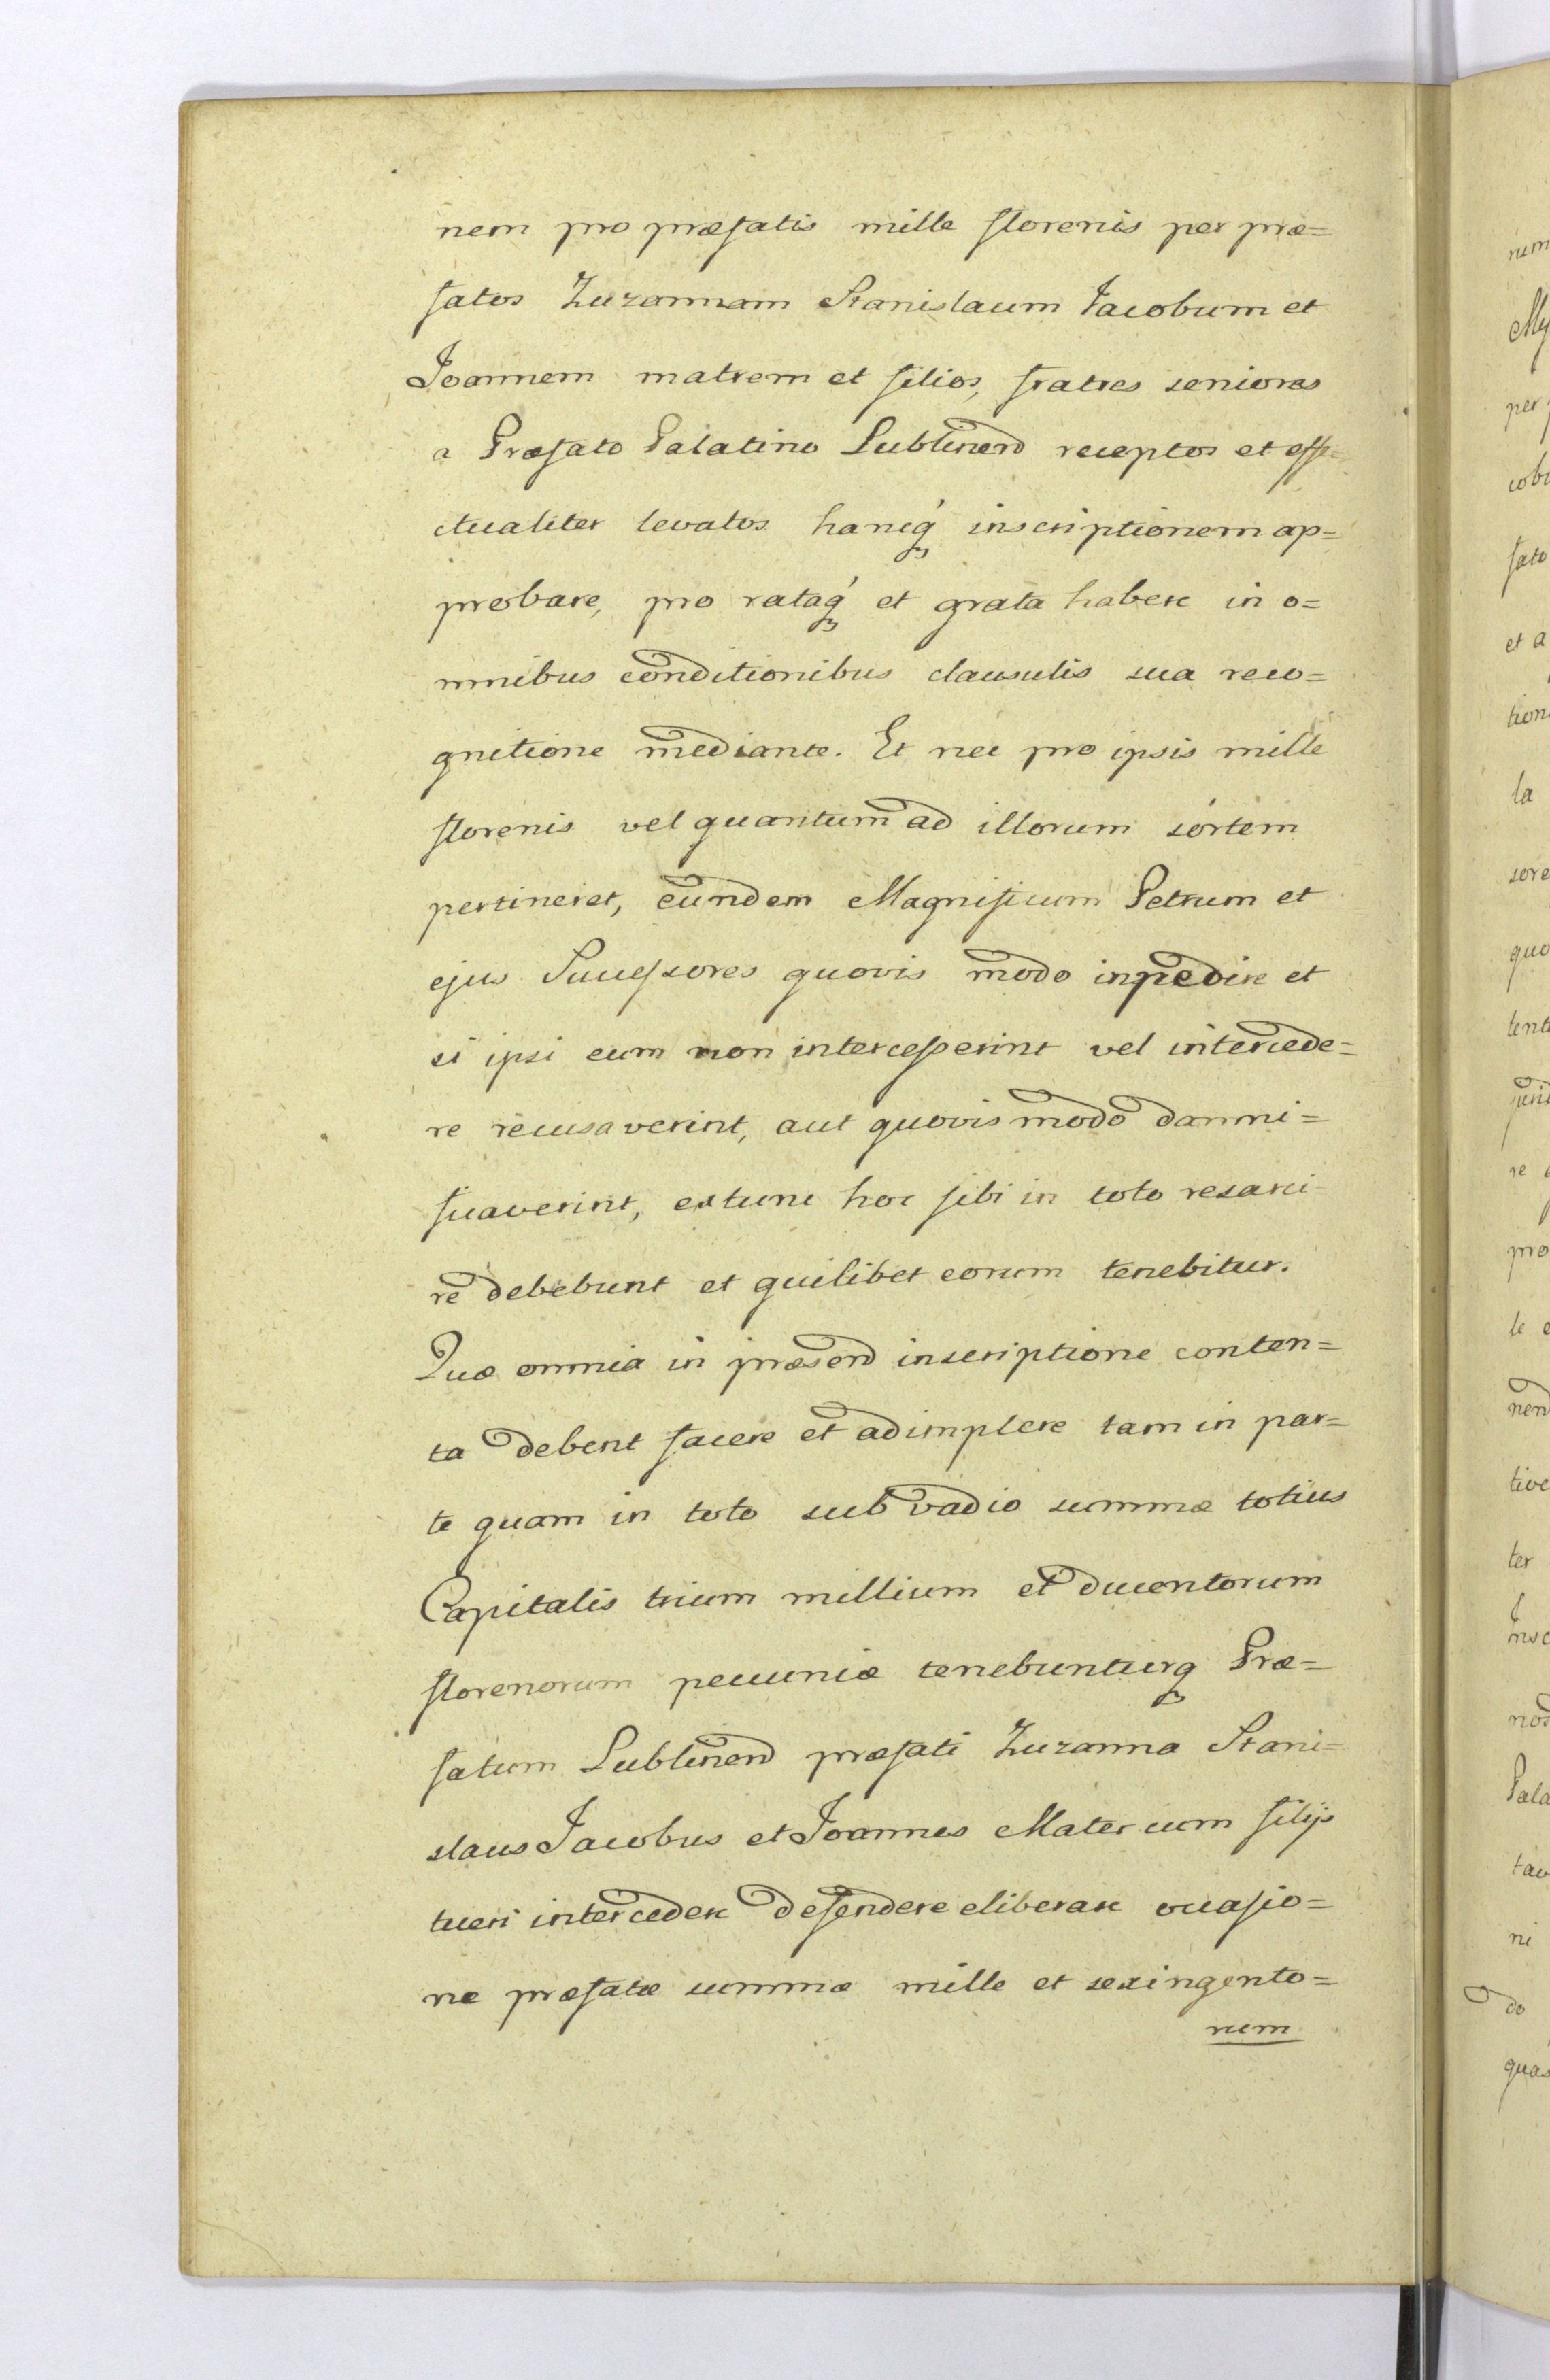 nem pro præfatis mille florenis per præ=
fatos Zuzannam Stanislaum Jacobum et
Joannem matrem et filios, fratres seniores
a Præfato Palatino Lublinen̄ receptos et effe=
ctualiter levatos hancq́ inscriptionem ap=
probare, pro rataq́ et grata habere in o=
mnibus conditionibus clausulis sua reco=
gnitione mediante. Et nec pro ipsis mille
florenis vel quantum ad illorum sórtem
pertineret, eundem Magnificum Petrum et
ejus Successores quovis modo inpedire et
si ipsi eum non intercesserint vel intercede=
re recusaverint, aut quovis modo damni=
ficaverint, extunc hoc sibi in toto resarci=
re debebunt et quilibet eorum tenebitur.
Quæ omnia in præsen̄ inscriptione conten=
ta debent facere et adimplere tam in par=
te quam in toto sub vadio summæ totius
Capitalis trium millium et ducentorum
florenorum pecuniæ tenebunturq Præ=
fatum Lublinen̄ præfati Zuzanna Stani=
slaus Jacobus et Joannes Mater cum filijs
tueri intercedere defendere eliberare occasio=
ne præfatæ summæ mille et sexingento=
rum